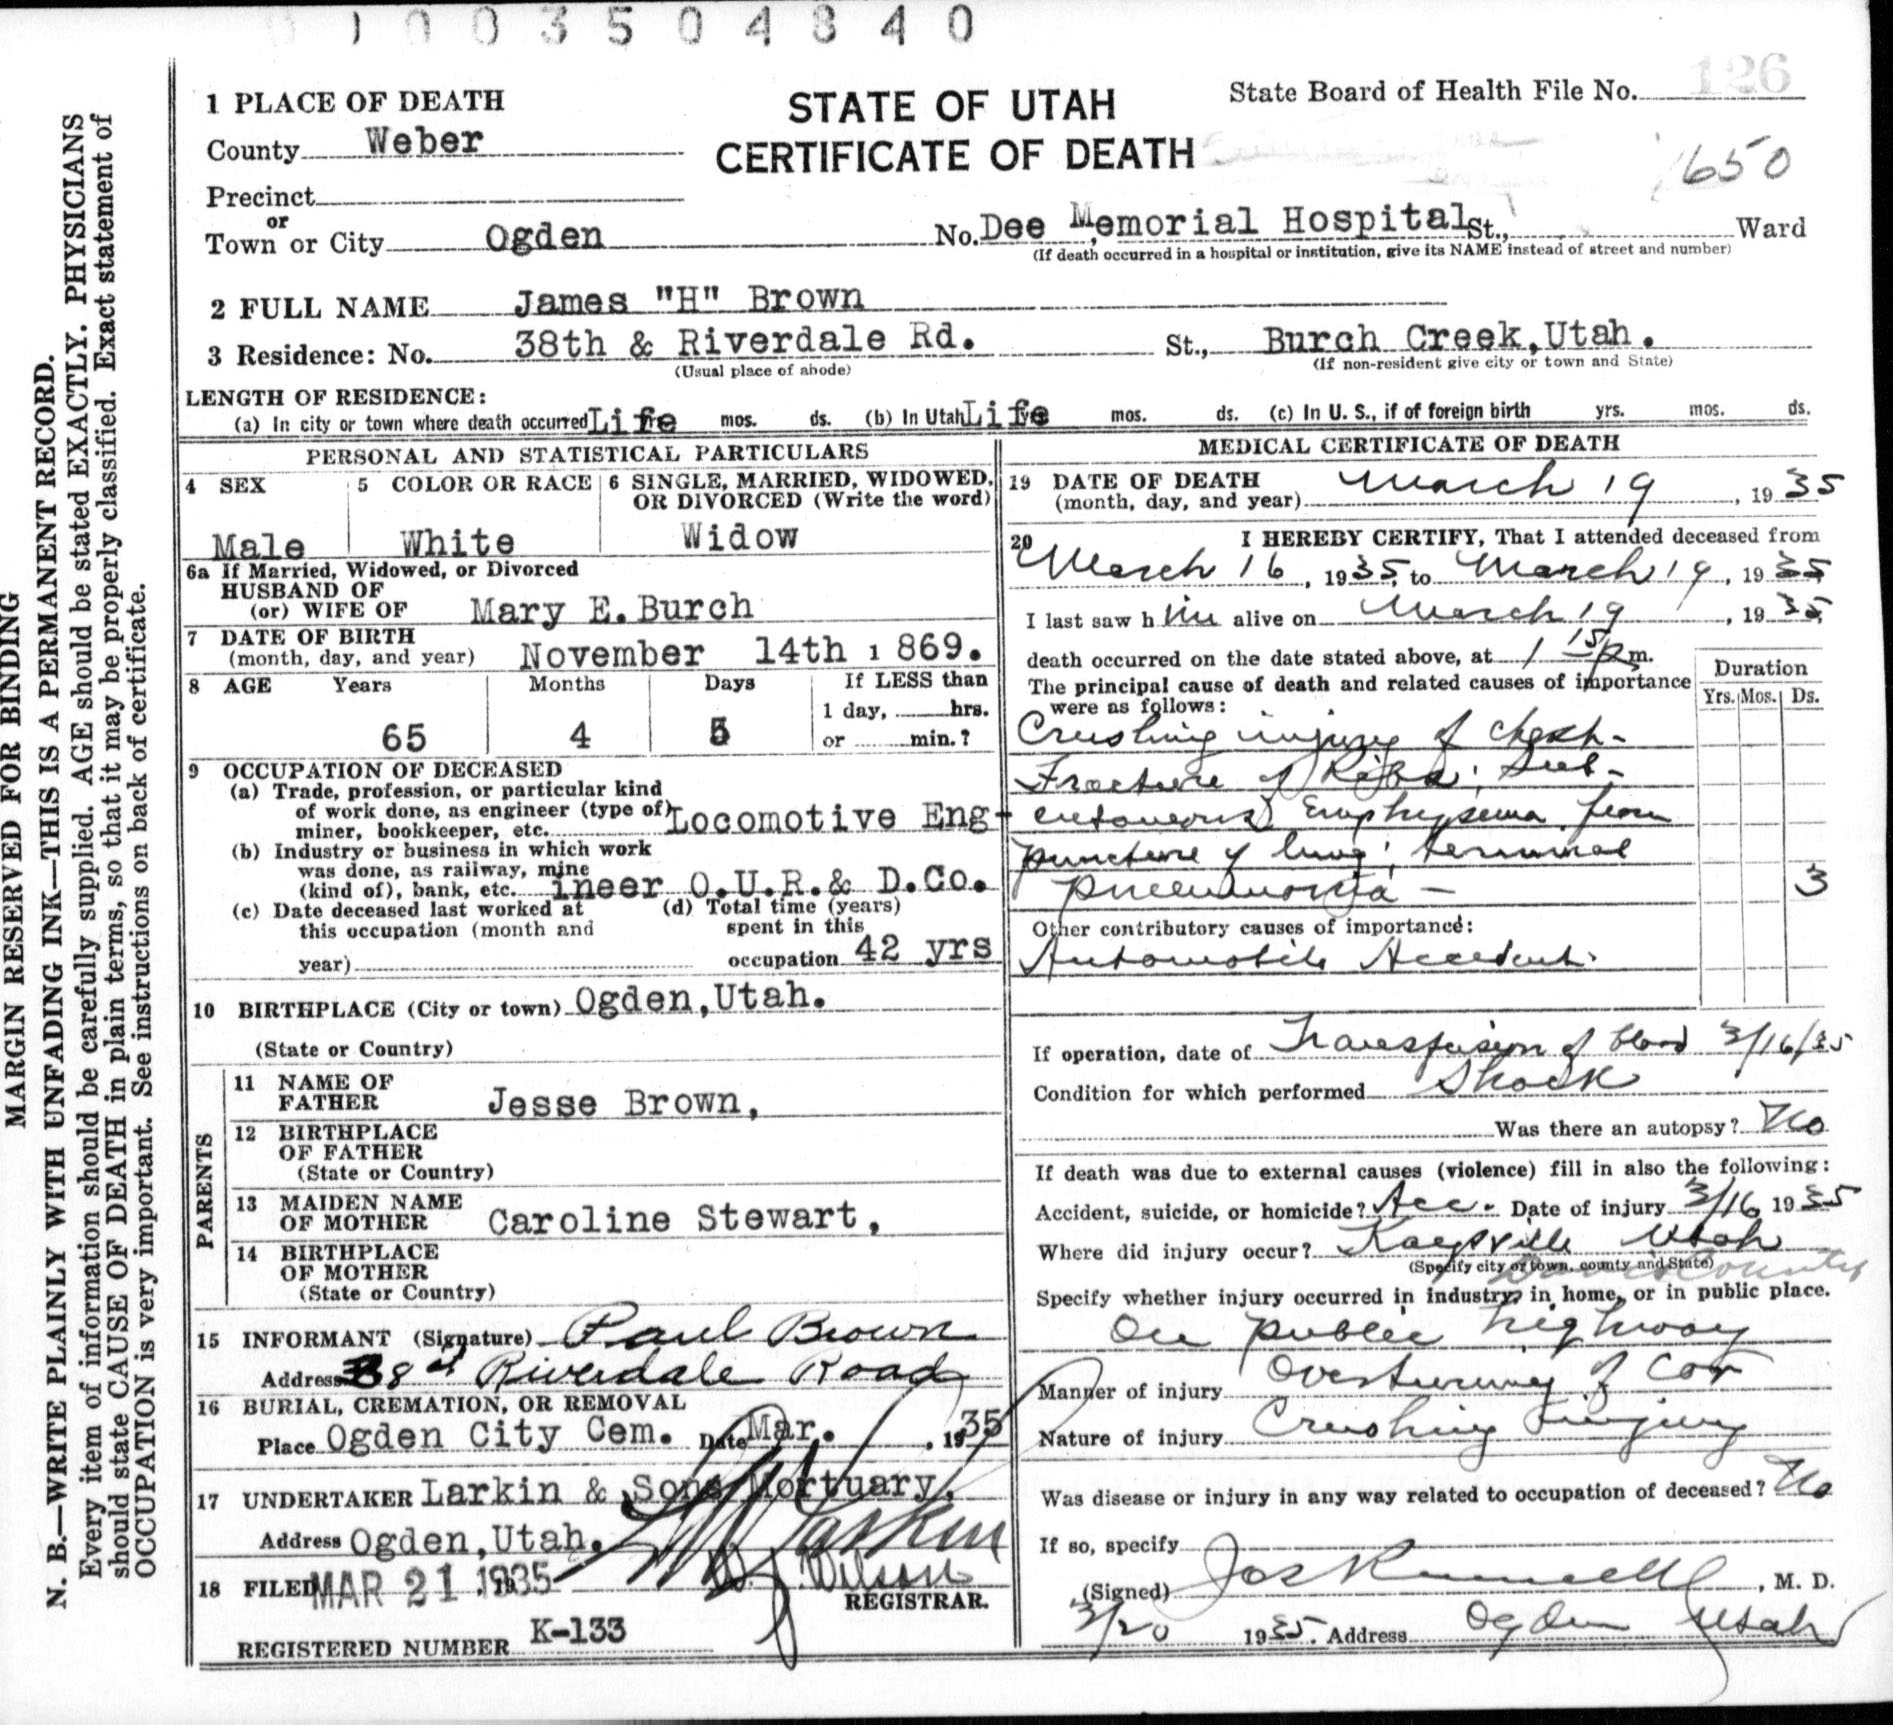 1003504840
1 PLACE OF DEATH
STATE OF UTAH
CERTIFICATE OF DEATH
State Board of Health File No. 126
1650
County Weber
Precinct
or
Town or City Ogden No. Dee Memorial Hospital St., Ward
(If death occurred in a hospital or institution, give its NAME instead of street and number)
2 FULL NAME James "H" Brown
3 Residence: No. 38th & Riverdale Rd. St., Burch Creek, Utah.
(Usual place of abode) (If non-resident give city or town and State)
LENGTH OF RESIDENCE:
(a) In city or town where death occurred Life mos. ds. (b) In Utah Life mos. ds. (c) In U. S., if of foreign birth yrs. mos. ds.
PERSONAL AND STATISTICAL PARTICULARS
4 SEX
Male
5 COLOR OR RACE
White
6 SINGLE, MARRIED, WIDOWED,
OR DIVORCED (Write the word)
Widow
6a If Married, Widowed, or Divorced
HUSBAND OF
(or) WIFE OF Mary E. Burch
7 DATE OF BIRTH
(month, day, and year) November 14th 1869.
8 AGE Years Months Days If LESS than
1 day, hrs.
65 4 5 or min.?
9 OCCUPATION OF DECEASED
(a) Trade, profession, or particular kind
of work done, as engineer (type of)
miner, bookkeeper, etc. Locomotive Eng-
(b) Industry or business in which work
was done, as railway, mine
(kind of), bank, etc. ineer O.U.R.& D.Co.
(c) Date deceased last worked at
this occupation (month and
year)
(d) Total time (years)
spent in this
occupation 42 yrs
10 BIRTHPLACE (City or town) Ogden, Utah.
(State or Country)
PARENTS
11 NAME OF
FATHER Jesse Brown,
12 BIRTHPLACE
OF FATHER
(State or Country)
13 MAIDEN NAME
OF MOTHER Caroline Stewart,
14 BIRTHPLACE
OF MOTHER
(State or Country)
15 INFORMANT (Signature) Paul Brown
Address 38th Riverdale Road
16 BURIAL, CREMATION, OR REMOVAL
Place Ogden City Cem. Date Mar. , 1935
17 UNDERTAKER Larkin & Sons Mortuary,
Address Ogden, Utah.
18 FILED MAR 21 1935 Wilson
REGISTRAR.
REGISTERED NUMBER K-133
MEDICAL CERTIFICATE OF DEATH
19 DATE OF DEATH
(month, day, and year) March 19, 1935
20 I HEREBY CERTIFY, That I attended deceased from
March 16, 1935, to March 19, 1935
I last saw him alive on March 19, 1935
death occurred on the date stated above, at 1 15 p m.
The principal cause of death and related causes of importance
were as follows:
Duration
Yrs. Mos. Ds.
Crushing injury of chest-
Fracture of Ribs; Sub-
cutaneous Emphysema from
puncture of lung; terminal
pneumonia - 3
Other contributory causes of importance:
Automobile Accident.
If operation, date of Transfusion of blood 3/16/35
Condition for which performed Shock
Was there an autopsy? No
If death was due to external causes (violence) fill in also the following:
Accident, suicide, or homicide? Acc. Date of injury 3/16 1935
Where did injury occur? Kaysville Utah
(Specify city or town, county and State)
Davis County
Specify whether injury occurred in industry, in home, or in public place.
On public highway
Manner of injury Overturning of Car
Nature of injury Crushing Injury
Was disease or injury in any way related to occupation of deceased? No
If so, specify
(Signed) , M. D.
3/20 1935. Address Ogden Utah
MARGIN RESERVED FOR BINDING
N. B.—WRITE PLAINLY WITH UNFADING INK—THIS IS A PERMANENT RECORD.
Every item of information should be carefully supplied. AGE should be stated EXACTLY. PHYSICIANS
should state CAUSE OF DEATH in plain terms, so that it may be properly classified. Exact statement of
OCCUPATION is very important. See instructions on back of certificate.